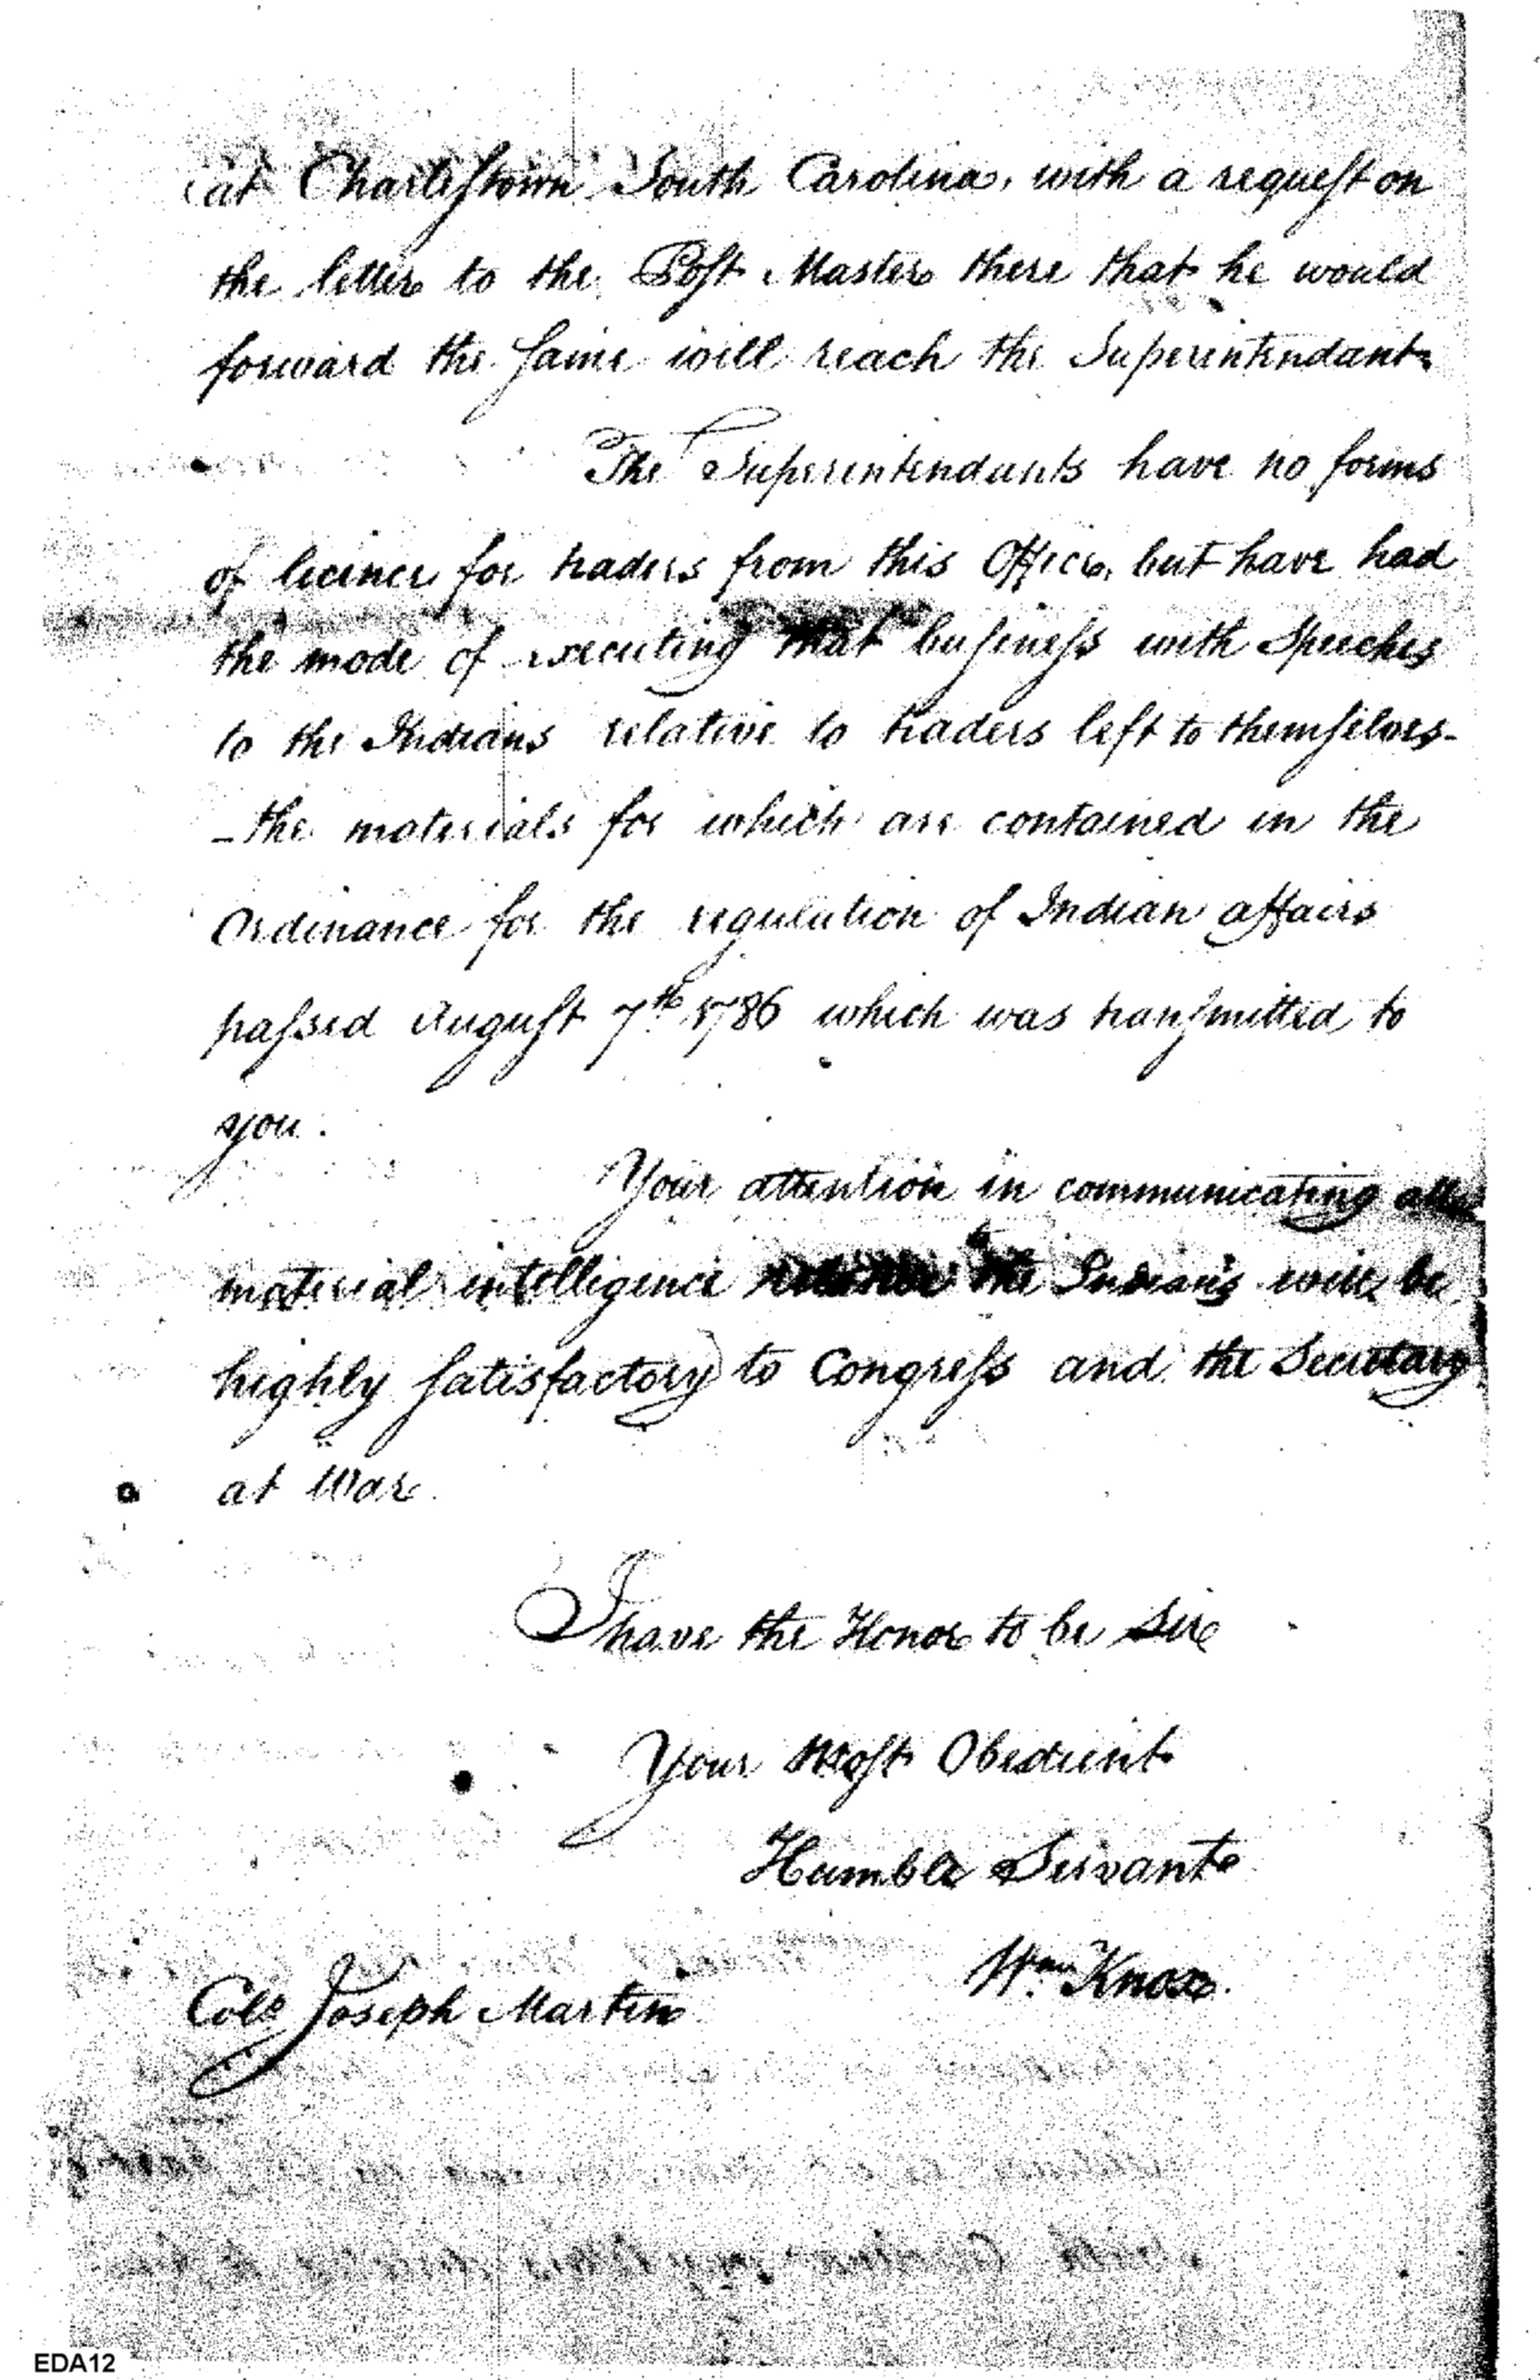 at Charlestown South Carolina, with a request on
the letter to the Post Master there that he would
forward the same will reach the Superintendant
The Superintendants have no forms
of licence for traders from this Office, but have had
the mode of executing that business with Speeches
to the Indians relative to traders left to themselves-
-the materials for which are contained in the
Ordinance for the regulation of Indian affairs
passed August 7th 1786 which was transmitted to
you.
Your attention in communicating all
material intelligence relative to the Indians will be
highly satisfactory to Congress and the Secretary
at War.
I have the Honor to be Sir
Your Most Obedient
Humble Servant
Wm Knox.
Colo Joseph Martin
EDA12